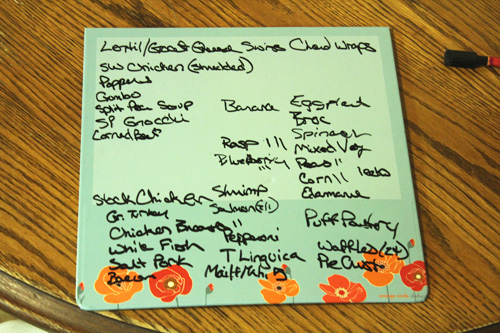 Lentil/Goat Cheese Swiss Chard Wraps
SW Chicken (shredded)
Peppers
Gombo
Split Pea Soup
SP Gnocchi
Corned Beef
Banana
Rasp 111
Blueberry
Eggplant
Broc
Spinach
Mixed Veg
Peas 11
Corn 11
Edamame
Stock Chicken
Gr. Turkey
Chicken Breast 11
White Fish
Salt Pork
Bacon
Shrimp
Salmon (11)
Pepperoni
T Linguica
Puff Pastry
Waffles (24)
Pie Crust